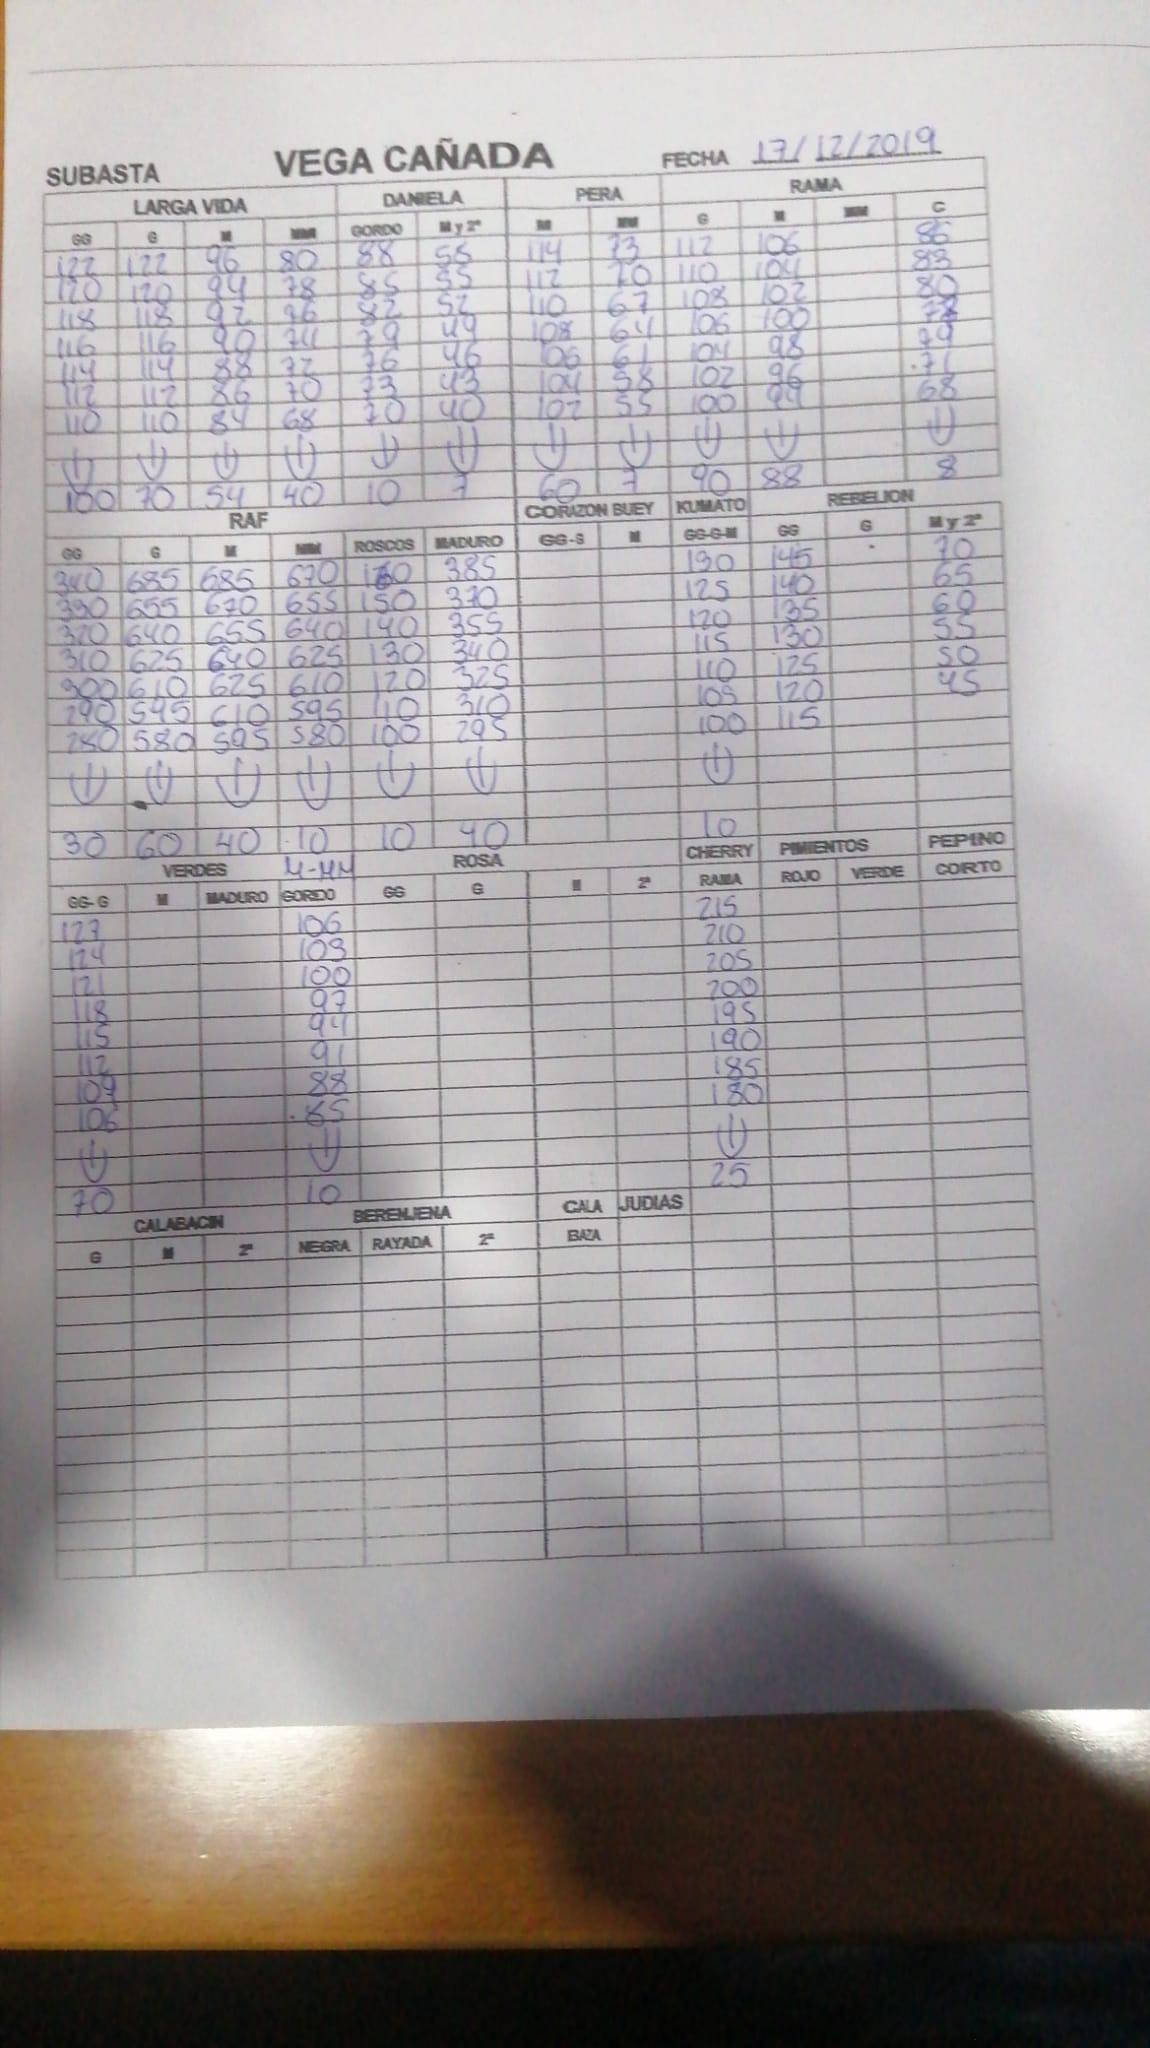 SUBASTA VEGA CAÑADA FECHA 17/12/2019
LARGA VIDA DANIELA PERA RAMA
GG G M MM GORDO M y 2ª M MM G M MM C
122 122 96 80 88 58 114 73 112 106 86
120 120 94 78 85 55 112 70 110 104 83
118 118 92 76 82 52 110 67 108 102 80
116 116 90 74 79 49 108 64 106 100
114 114 88 72 76 46 106 61 104 98
112 112 86 70 73 43 104 58 102 96 71
110 110 84 68 70 40 102 55 100 94 68
↓ ↓ ↓ ↓ ↓ ↓ ↓ ↓ ↓ ↓ ↓
100 70 54 40 10 7 60 7 90 88 8
RAF CORAZON BUEY KUMATO REBELION
GG G M MM ROSCOS MADURO GG-G M GG-G-M GG G M y 2ª
340 685 685 670 160 385 130 145 70
330 655 670 655 150 370 125 140 65
320 640 655 640 140 355 120 135 60
310 625 640 625 130 340 115 130 55
300 610 625 610 120 325 110 125 50
290 595 610 595 110 310 105 120 45
280 580 595 580 100 295 100 115
↓ ↓ ↓ ↓ ↓ ↓ ↓
30 60 40 10 10 40 10
VERDES M-MM ROSA CHERRY PIMIENTOS PEPINO
GG-G M MADURO GORDO GG G M 2ª RAMA ROJO VERDE CORTO
127 106 215
124 103 210
121 100 205
118 97 200
115 94 195
112 91 190
109 88 185
106 85 180
↓ ↓ ↓
70 10 25
CALABACIN BERENJENA CALA JUDIAS
G M 2ª NEGRA RAYADA 2ª BAZA